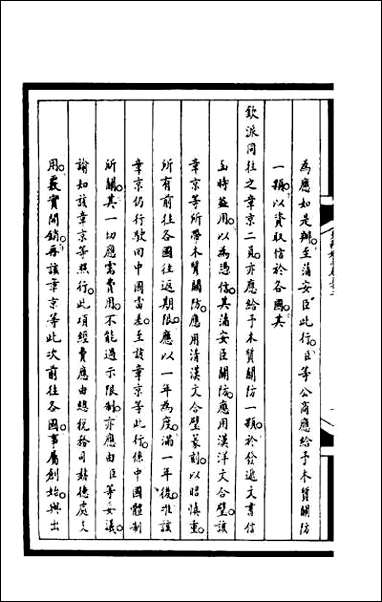 為應如是辦至蒲安臣此行臣等公商應給予木質關防
一顆以資取信於各國其
欽派同往之章京二員亦應給予木質關防一顆於咨遞文書信
函時葢用以為憑信其蒲安臣關防應用漢洋文合璧該
章京等所帶木質關防應用清漢文合璧篆刻以昭慎重
所有前往各國往返期限應以一年為度滿一年後准該
章京仍行駛回中國當差至該章京等此行係中國體制
所關其一切應需費用不能過示限制亦應由臣等妥議
諭知該章京等照行此項經費應由總稅務司赫德處支
用覈實開銷再該章京等此次前往各國事屬創始與出